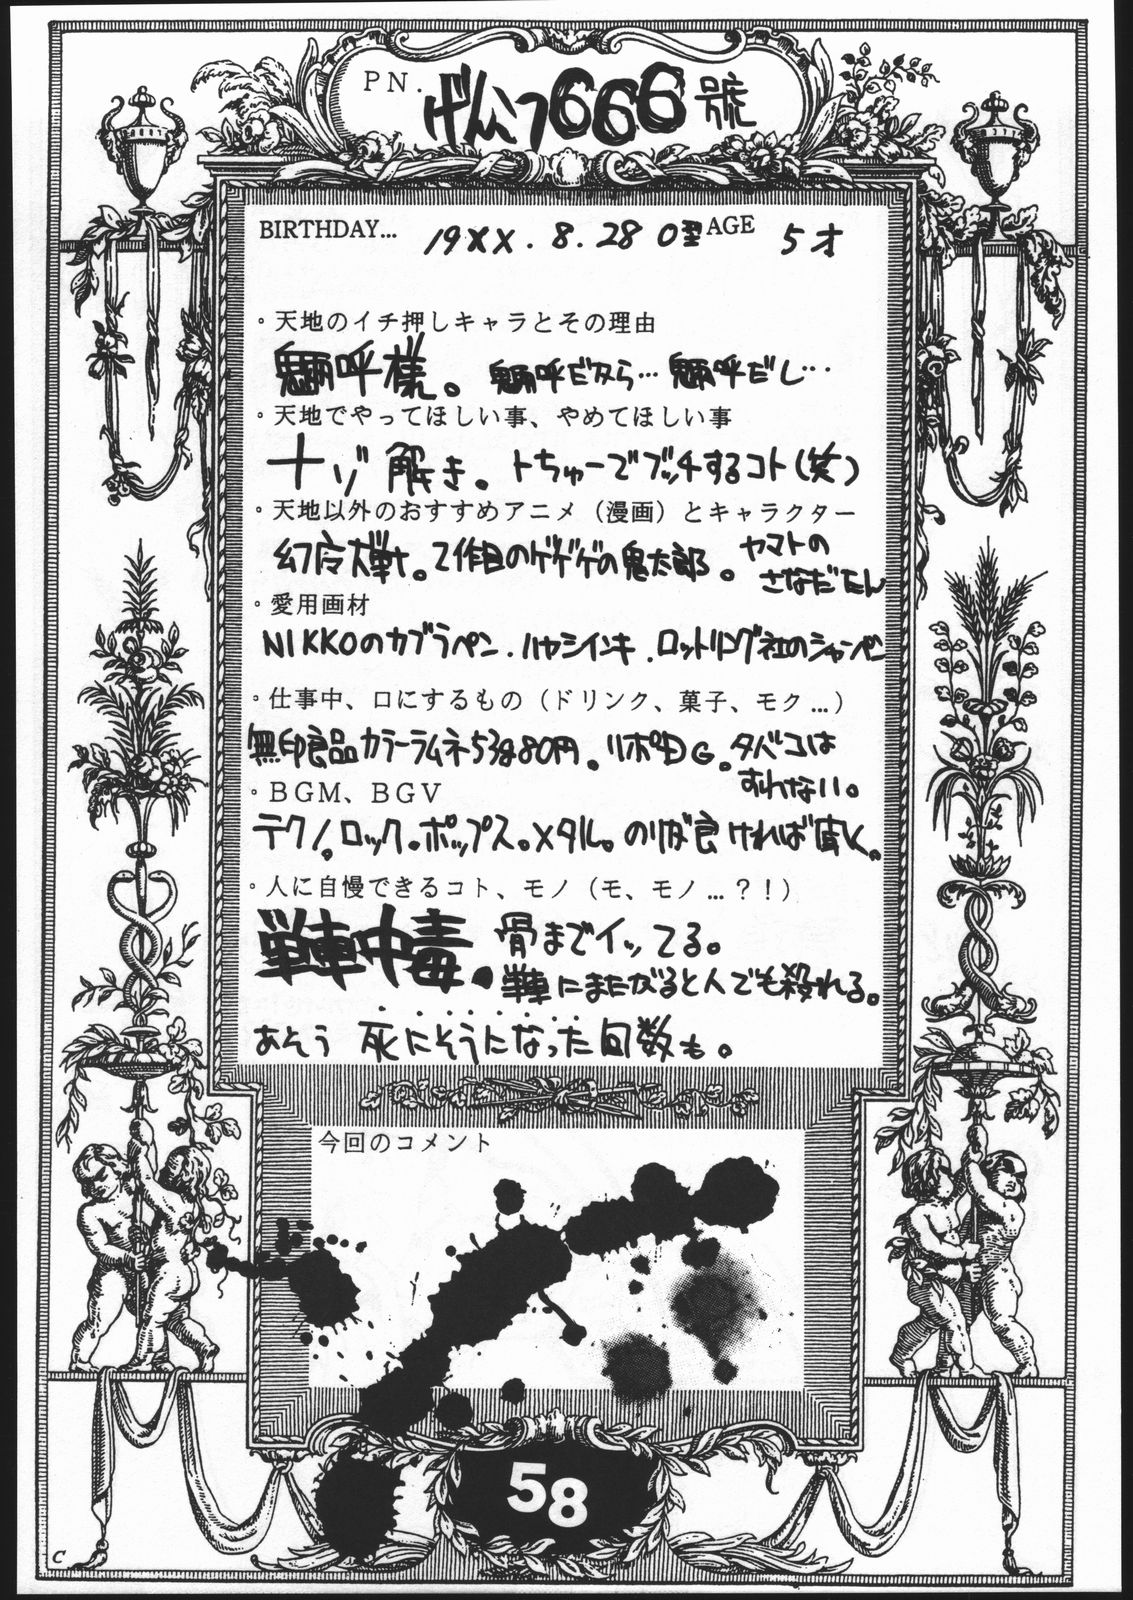 PN. げんこつ666号
BIRTHDAY... 19XX.8.28 O型 AGE 5才
・天地のイチ押しキャラとその理由
魎呼様。魎呼だから…魎呼だし…
・天地でやってほしい事、やめてほしい事
ナゾ解き。トちゅーでブッチするコト(笑)
・天地以外のおすすめアニメ（漫画）とキャラクター
幻魔大戦。2作目のゲゲゲの鬼太郎。ヤマトの
さなださん
・愛用画材
NIKKOのカブラペン.ハヤシインキ.ロットリング社のシャーペン
・仕事中、口にするもの（ドリンク、菓子、モク…）
無印良品カラーラムネ53g80円。リポDG。タバコは
すわない。
・BGM、BGV
テクノ。ロック。ポップス。メタル。のりが良ければ
・人に自慢できるコト、モノ（モ、モノ…？！）
単車中毒。骨までイッてる。
単車にまたがると人でも殺れる。
あそう 死にそうになった回数も。
今回のコメント
...
58
C